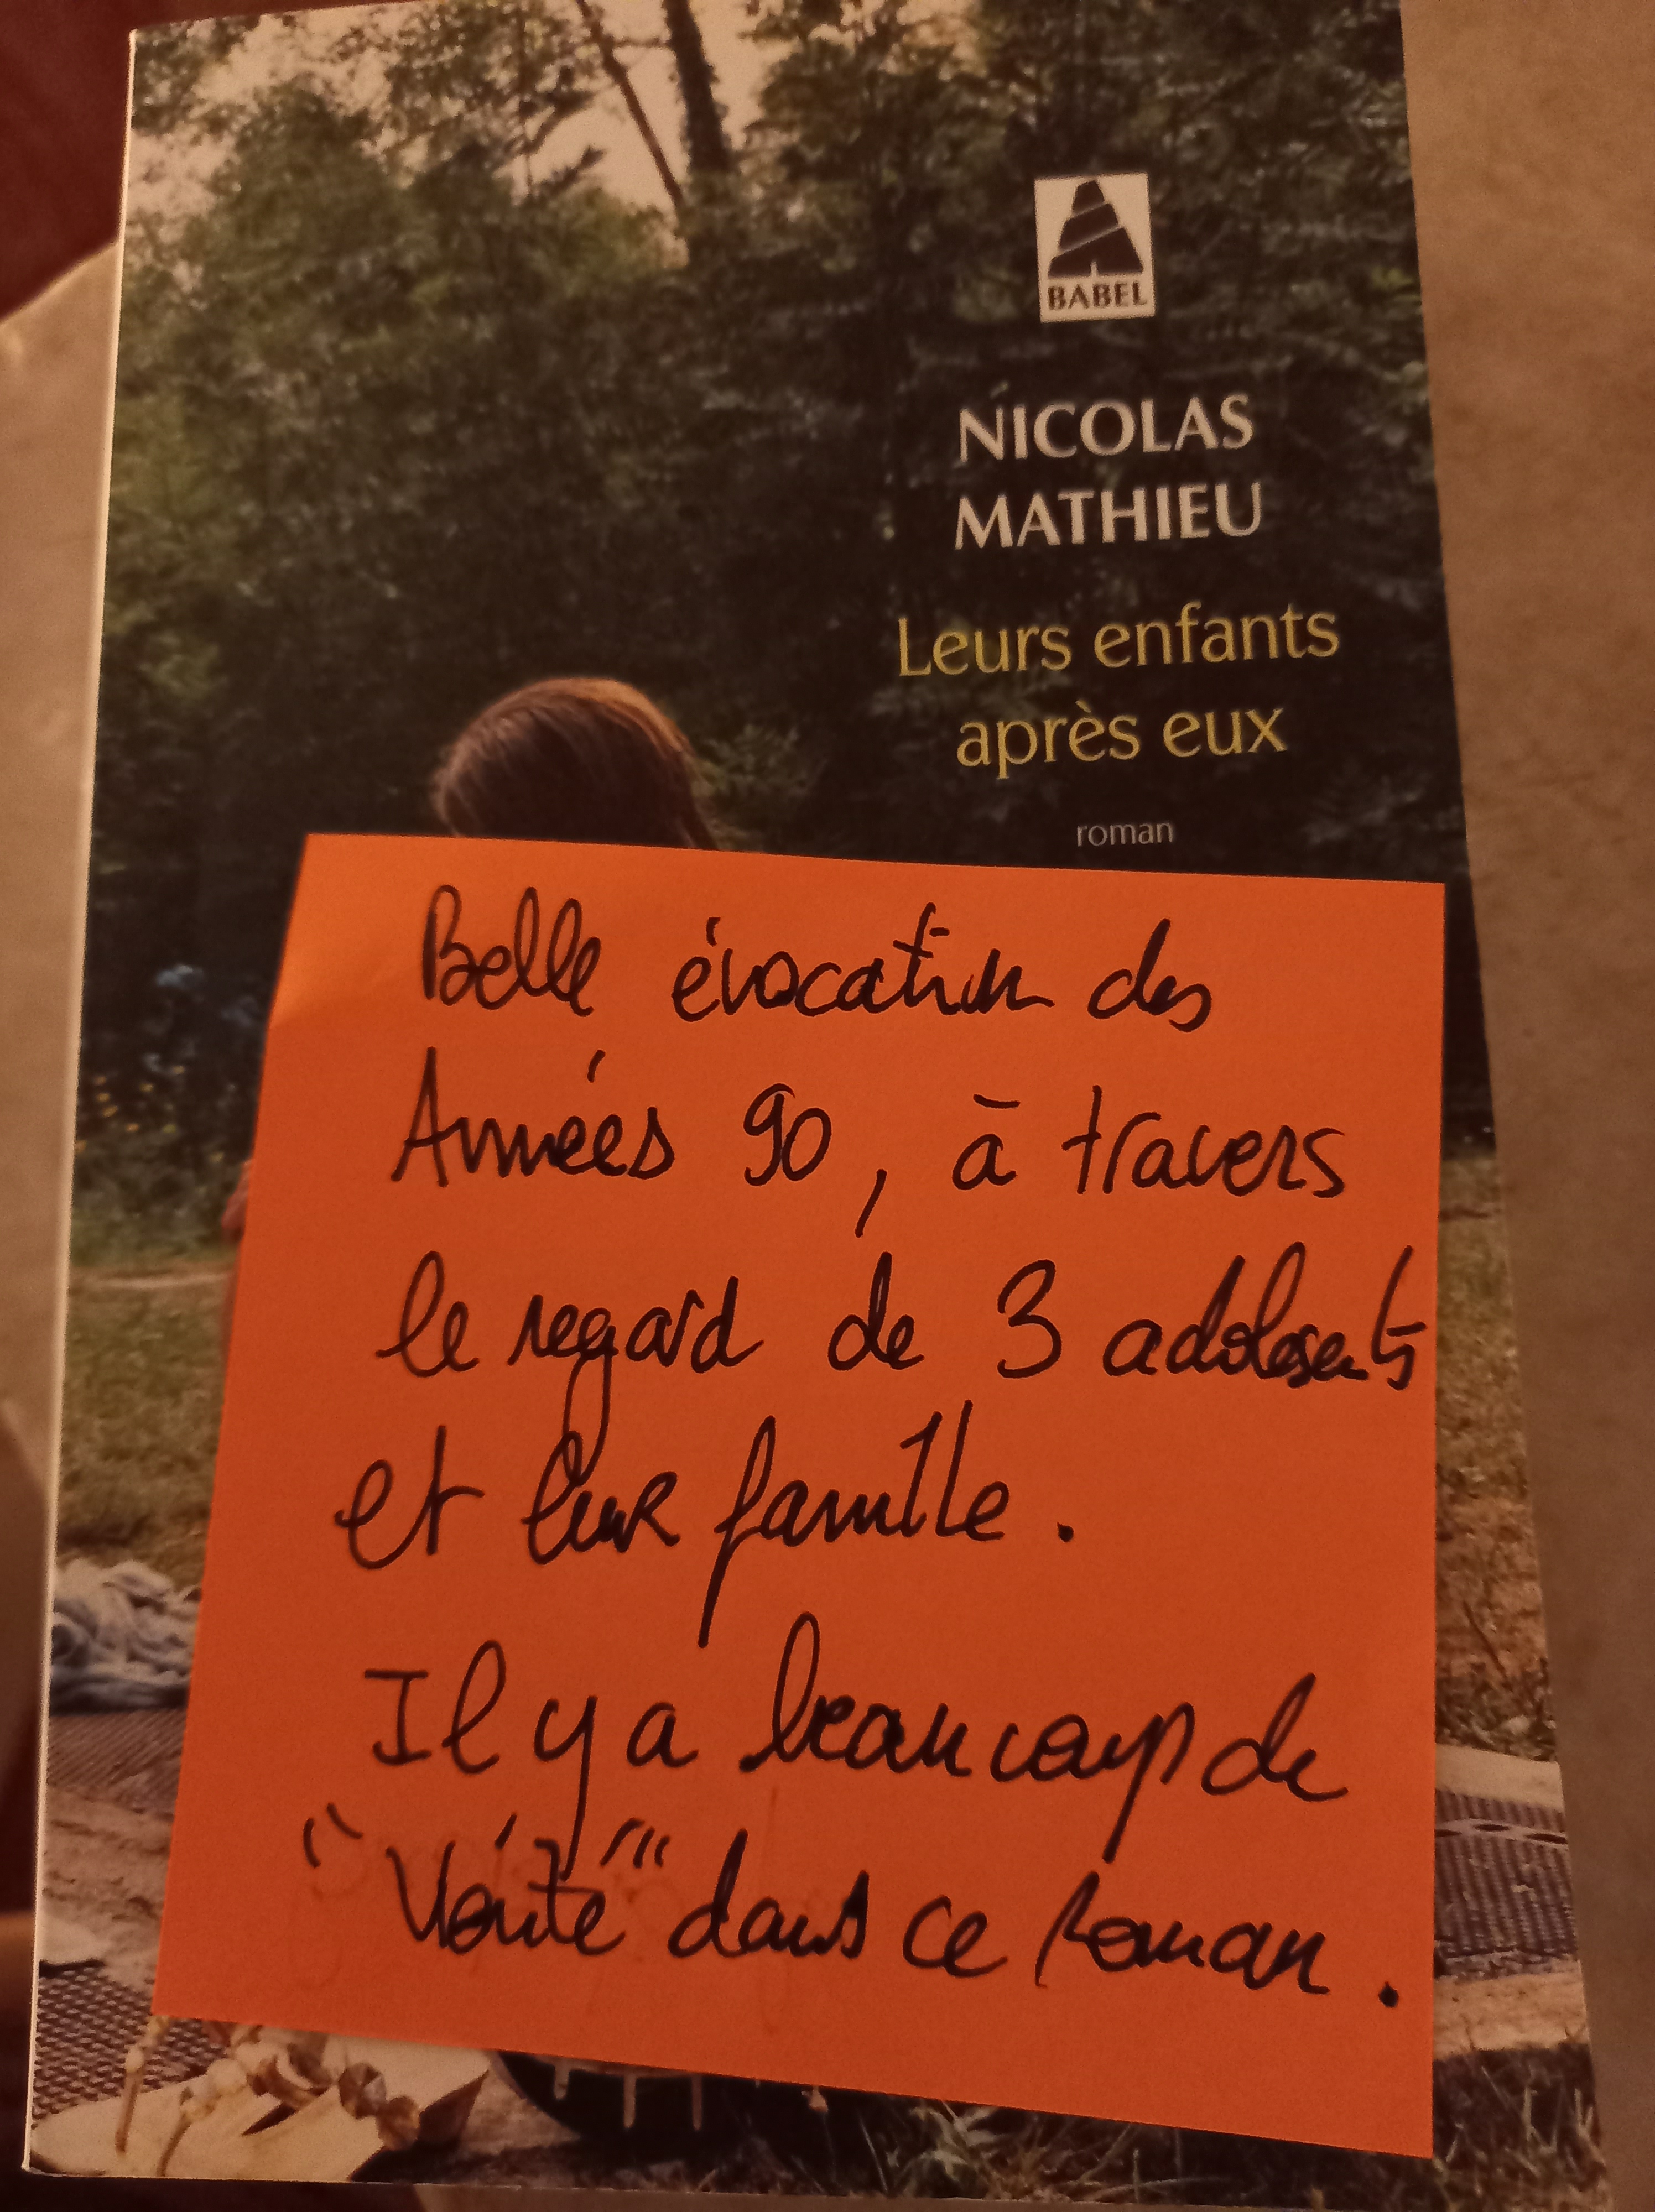 BABEL
NICOLAS
MATHIEU
Leurs enfants
après eux
roman
Belle évocation des
Années 90, à travers
le regard de 3 adolescents
et leur famille.
Il y a beaucoup de
"Vérité" dans ce roman.